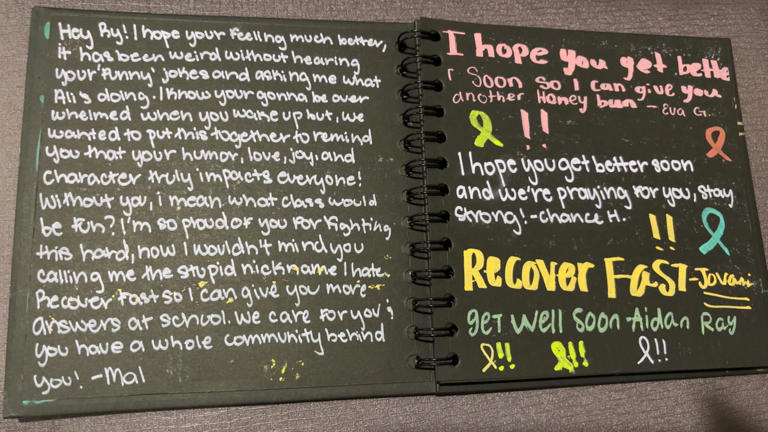 Hey Ry! I hope your feeling much better,
it has been weird without hearing
your "funny" jokes and asking me what
Ali's doing. I know your gonna be over
whelmed when you wake up but, we
wanted to put this together to remind
you that your humor, love, joy, and
character truly impacts everyone!
Without you, i mean what class would
be fun? I'm so proud of you for fighting
this hard, now I wouldn't mind you
calling me the stupid nickname I hate.
Recover fast so I can give you more
answers at school. We care for you &
you have a whole community behind
you! -Mal
I hope you get bette
r Soon so I can give you
another Honey bun - Eva G.
!!
I hope you get better soon
and we're praying for you, stay
strong! -Chance H.
!!
Recover FasT -Jovani
get well soon -Aidan Ray
!! !! !!